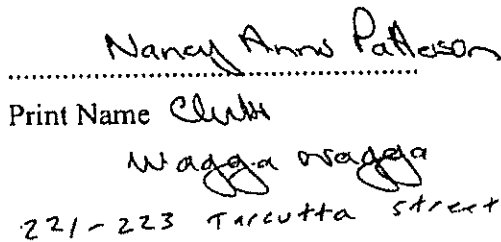 Nancy Anne Patterson
Print Name Clerk
Wagga Wagga
221-223 Tarcutta street